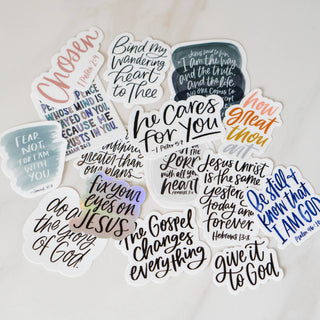 Chosen
1 Peter 2:9
Bind my
wandering
heart
to Thee
Jesus said to him,
I am the way
and the truth,
and the
life
no one comes to
PEACE
WHOSE MIND IS
ON YOU
BECAUSE HE
TRUSTS IN YOU.
he Cares
for YOU
1 Peter 5:7
how
great
thou
art
FEAR
NOT,
FOR I AM
WITH
YOU
greater than
our plans
LORD
with all your
heart
Jesus Christ
is the same
yesterday
today and
forever.
Hebrews 13:8
Be still &
know that
I AM GOD
Psalm 46:10
fix your
eyes on
JESUS
do all
the glory
of God.
The Gospel
Changes
everything
give it
to GOD